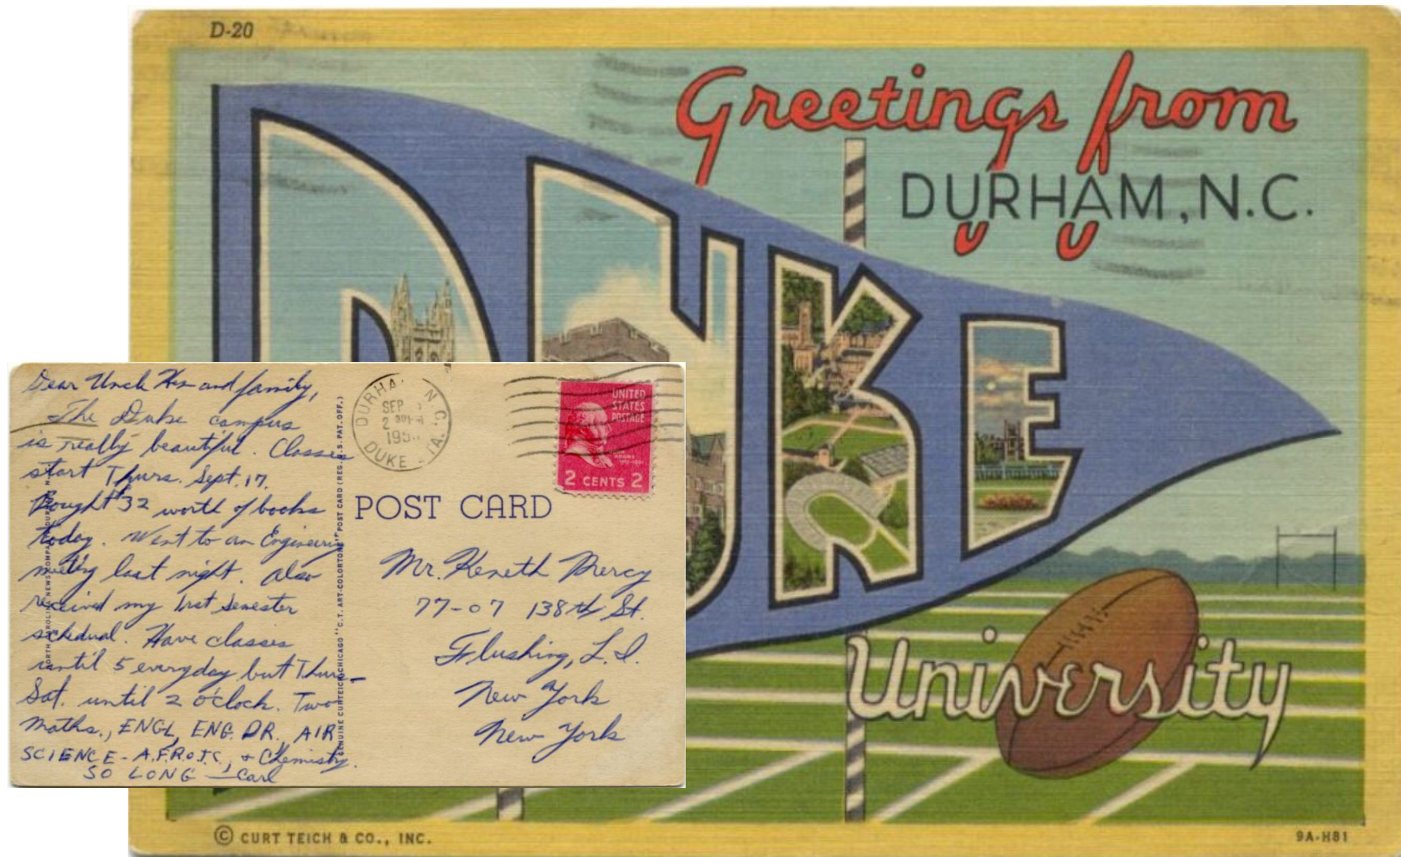 D-20
Greetings from
DURHAM, N.C.
DUKE
University
© CURT TEICH & CO., INC.
9A-H81
Dear Uncle Ken and family,
The Duke campus
is really beautiful. Classes
start Thurs. Sept. 17.
Bought $32 worth of books
today. Went to an Engineering
meeting last night. Also
received my 1rst Semester
schedual. Have classes
until 5 everyday but Thurs-
Sat. until 2 o'clock. Two
maths., ENGL, ENG. DR., AIR
SCIENCE - A.F.R.O.T.C., + Chemistry.
SO LONG — Carl
GENUINE CURTEICH-CHICAGO "C.T. ART-COLORTONE" POST CARD (REG. U.S. PAT. OFF.)
DURHA N.C.
SEP
2 PM
195
DUKE TA.
UNITED
STATES
POSTAGE
2 CENTS 2
POST CARD
Mr. Keneth Mercy
77-07 138th St.
Flushing, L.I.
New York
New York